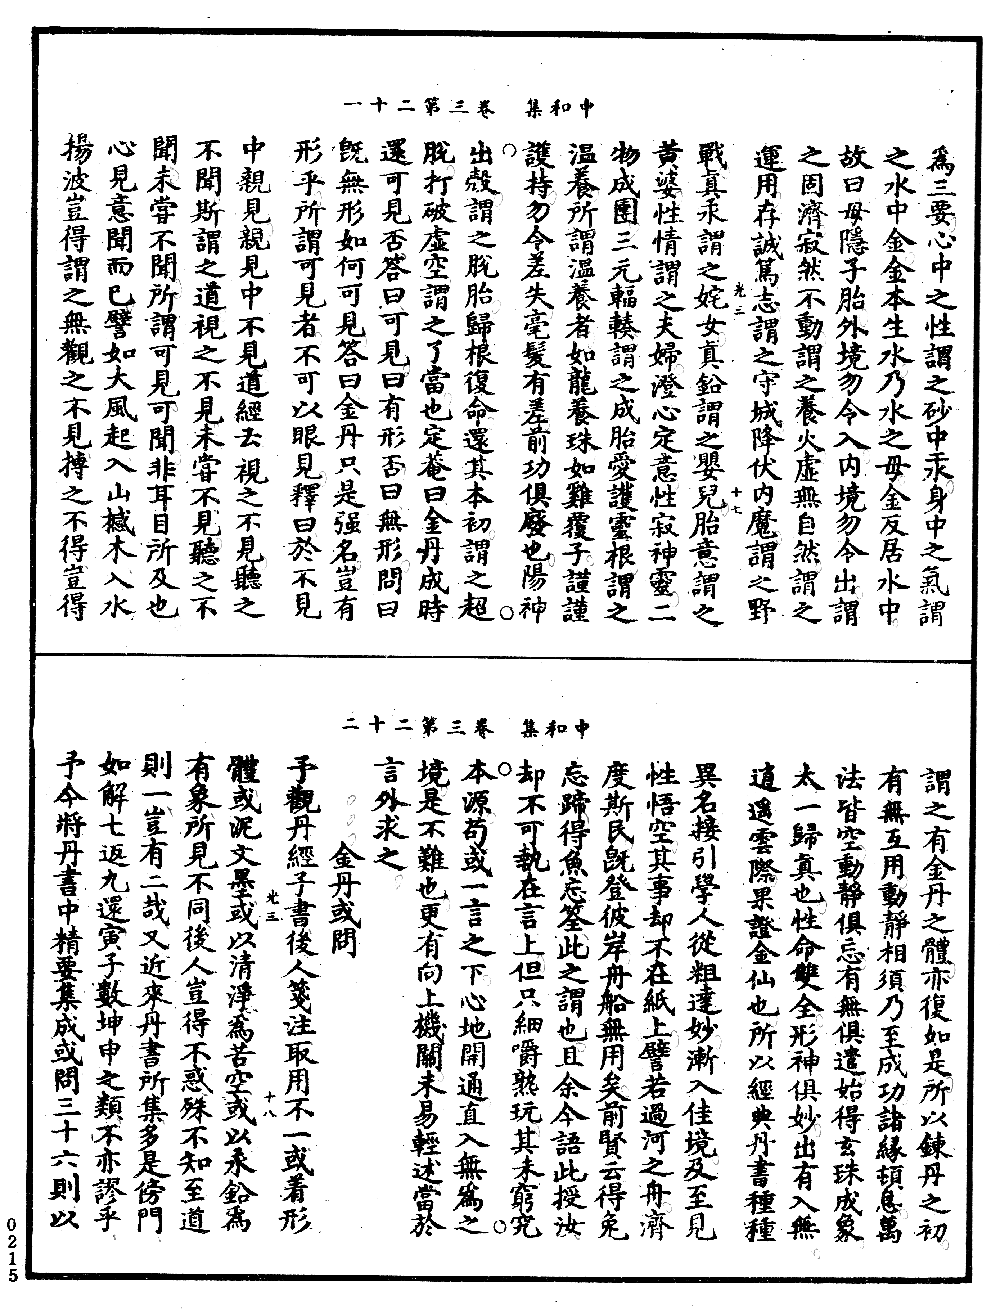 中和集　卷三第二十一
爲三要心中之性謂之砂中汞身中之氣謂
之水中金金本生水乃水之母金反居水中
故曰母隱子胎外境勿令入內境勿令出謂
之固濟寂然不動謂之養火虛無自然謂之
運用存誠篤志謂之守城降伏內魔謂之野
光三　十七
戰真汞謂之姹女真鉛謂之嬰兒胎意謂之
黃婆性情謂之夫婦澄心定意性寂神靈二
物成團三元輻輳謂之成胎愛護靈根謂之
溫養所謂溫養者如龍養珠如雞覆子謹謹
護持勿令差失毫髮有差前功俱廢也陽神
出殼謂之脫胎歸根復命還其本初謂之超
脫打破虛空謂之了當也定菴曰金丹成時
還可見否答曰可見曰有形否曰無形問曰
旣無形如何可見答曰金丹只是强名豈有
形乎所謂可見者不可以眼見釋曰於不見
中親見親見中不見道經云視之不見聽之
不聞斯謂之道視之不見未嘗不見聽之不
聞未嘗不聞所謂可見可聞非耳目所及也
心見意聞而已譬如大風起入山撼木入水
揚波豈得謂之無觀之不見搏之不得豈得
中和集　卷三第二十二
謂之有金丹之體亦復如是所以鍊丹之初
有無互用動靜相須乃至成功諸緣頓息萬
法皆空動靜俱忘有無俱遣始得玄珠成象
太一歸真也性命雙全形神俱妙出有入無
逍遙雲際果證金仙也所以經典丹書種種
異名接引學人從粗達妙漸入佳境及至見
性悟空其事却不在紙上譬若過河之舟濟
度斯民旣登彼岸舟船無用矣前賢云得兔
忘蹄得魚忘筌此之謂也且余今語此授汝
却不可執在言上但只細嚼熟玩其未窮究
本源苟或一言之下心地開通直入無爲之
境是不難也更有向上機關未易輕述當於
言外求之
金丹或問
予觀丹經子書後人箋注取用不一或着形
光三　十八
體或泥文墨或以清淨爲苦空或以汞鉛爲
有象所見不同後人豈得不惑殊不知至道
則一豈有二哉又近來丹書所集多是傍門
如解七返九還寅子數坤申之類不亦謬乎
予今將丹書中精要集成或問三十六則以
0215